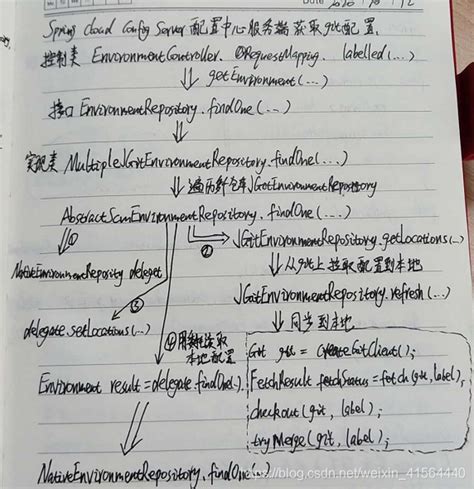 Spring Cloud Config Server 配置中心服务端 获取git配置.
控制类 EnvironmentController. @RequestMapping. labelled(...)
getEnvironment(...)
接口 EnvironmentRepository.findOne(...)
实现类 MultipleJGitEnvironmentRepository.findOne(...)
遍历 仓库 JGitEnvironmentRepository
AbstractScmEnvironmentRepository.findOne(...)
① ②
JGitEnvironmentRepository.getLocations(...)
NativeEnvironmentReposity deleget
从git上 拉取 配置到本地
③
JGitEnvironmentRepository.refresh(...)
delegate.setLocations(...)
同步到本地
④ 读取
本地配置
Git git = createGitClient();
Environment result = delegate.findOne(.)
FetchResult fetchStatus = fetch(git, label);
checkout(git, label);
tryMerge(git, label);
NativeEnvironmentRepository.findOne(...)
https://blog.csdn.net/weixin_41564440